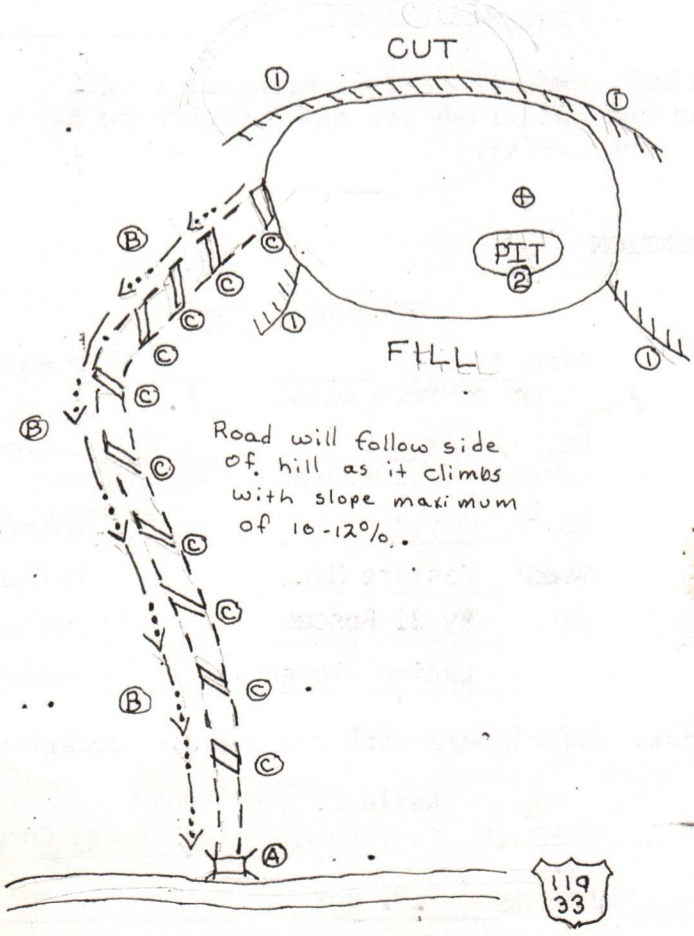 CUT
1
1
B
C
+
PIT
2
C
C
1
C
FILL
1
C
B
Road will follow side
of hill as it climbs
with slope maximum
of 10-12%.
C
C
C
B
C
C
A
119
33